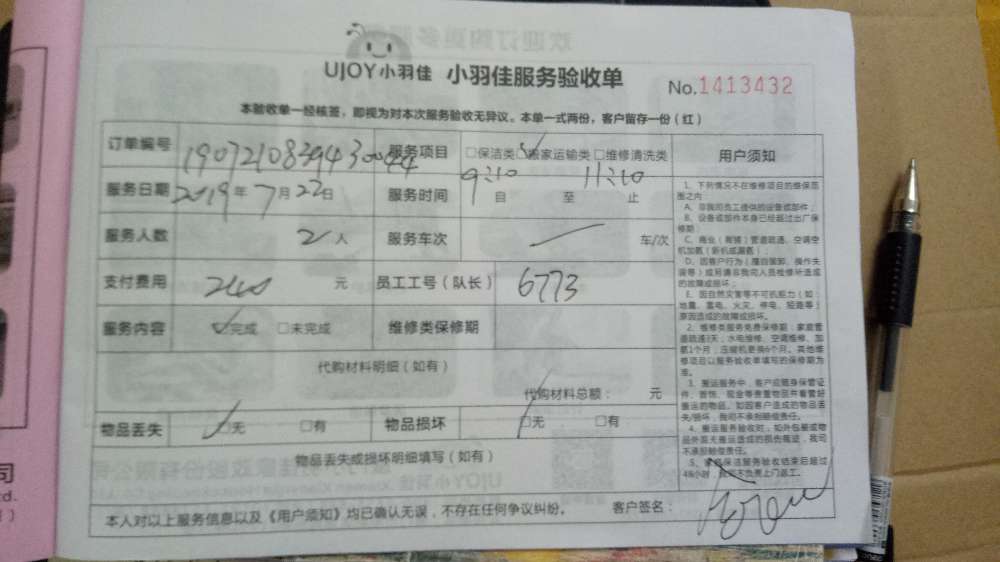 UJOY小羽佳 小羽佳服务验收单
No.1413432
本验收单一经核签，即视为对本次服务验收无异议。本单一式两份，客户留存一份（红）
订单编号 服务项目 □保洁类 □搬家运输类 □维修清洗类 用户须知
服务日期 2019年7月22日 服务时间 9:10 自 至 11:10 止
服务人数 2人 服务车次 车/次
支付费用 240 元 员工工号（队长） 6773
服务内容 □完成 □未完成 维修类保修期
代购材料明细（如有）
代购材料总额： 元
物品丢失 □无 □有 物品损坏 □无 □有
物品丢失或损坏明细填写（如有）
本人对以上服务信息以及《用户须知》均已确认无误，不存在任何争议纠纷。 客户签名：
1、下列情况不在维修项目的维保范
围之内
A、非我司员工提供的设备或部件；
B、设备或部件本身已经超过出厂保
修期；
C、商业（商铺）管道疏通、空调空
机加氨（新机或漏氨）；
D、因客户行为（擅自装卸、操作失
误等）或另请非我司人员检修补造成
的故障或损坏；
E、因自然灾害等不可抗能力（如：
地震、雷电、火灾、停电、短路等）
原因造成的故障或损坏。
2、维修类服务免费保修期：家庭管
道疏通3天；水电维修、空调维修、加
氨1个月，压缩机更换6个月。其他维
修项目以服务验收单填写的保修期为
准。
3、搬运服务中，客户应随身保管证
件、首饰、现金等贵重物品并看管好
搬运的物品。如因客户造成的物品丢
失/损坏，我司不承担赔偿责任。
4、搬运服务验收时，如外包装或物
品外面无搬运造成的损伤痕迹，我司
不承担赔偿责任。
5、家居保洁服务验收结束后超过
48小时，我司不负责上门返工。
司
td.